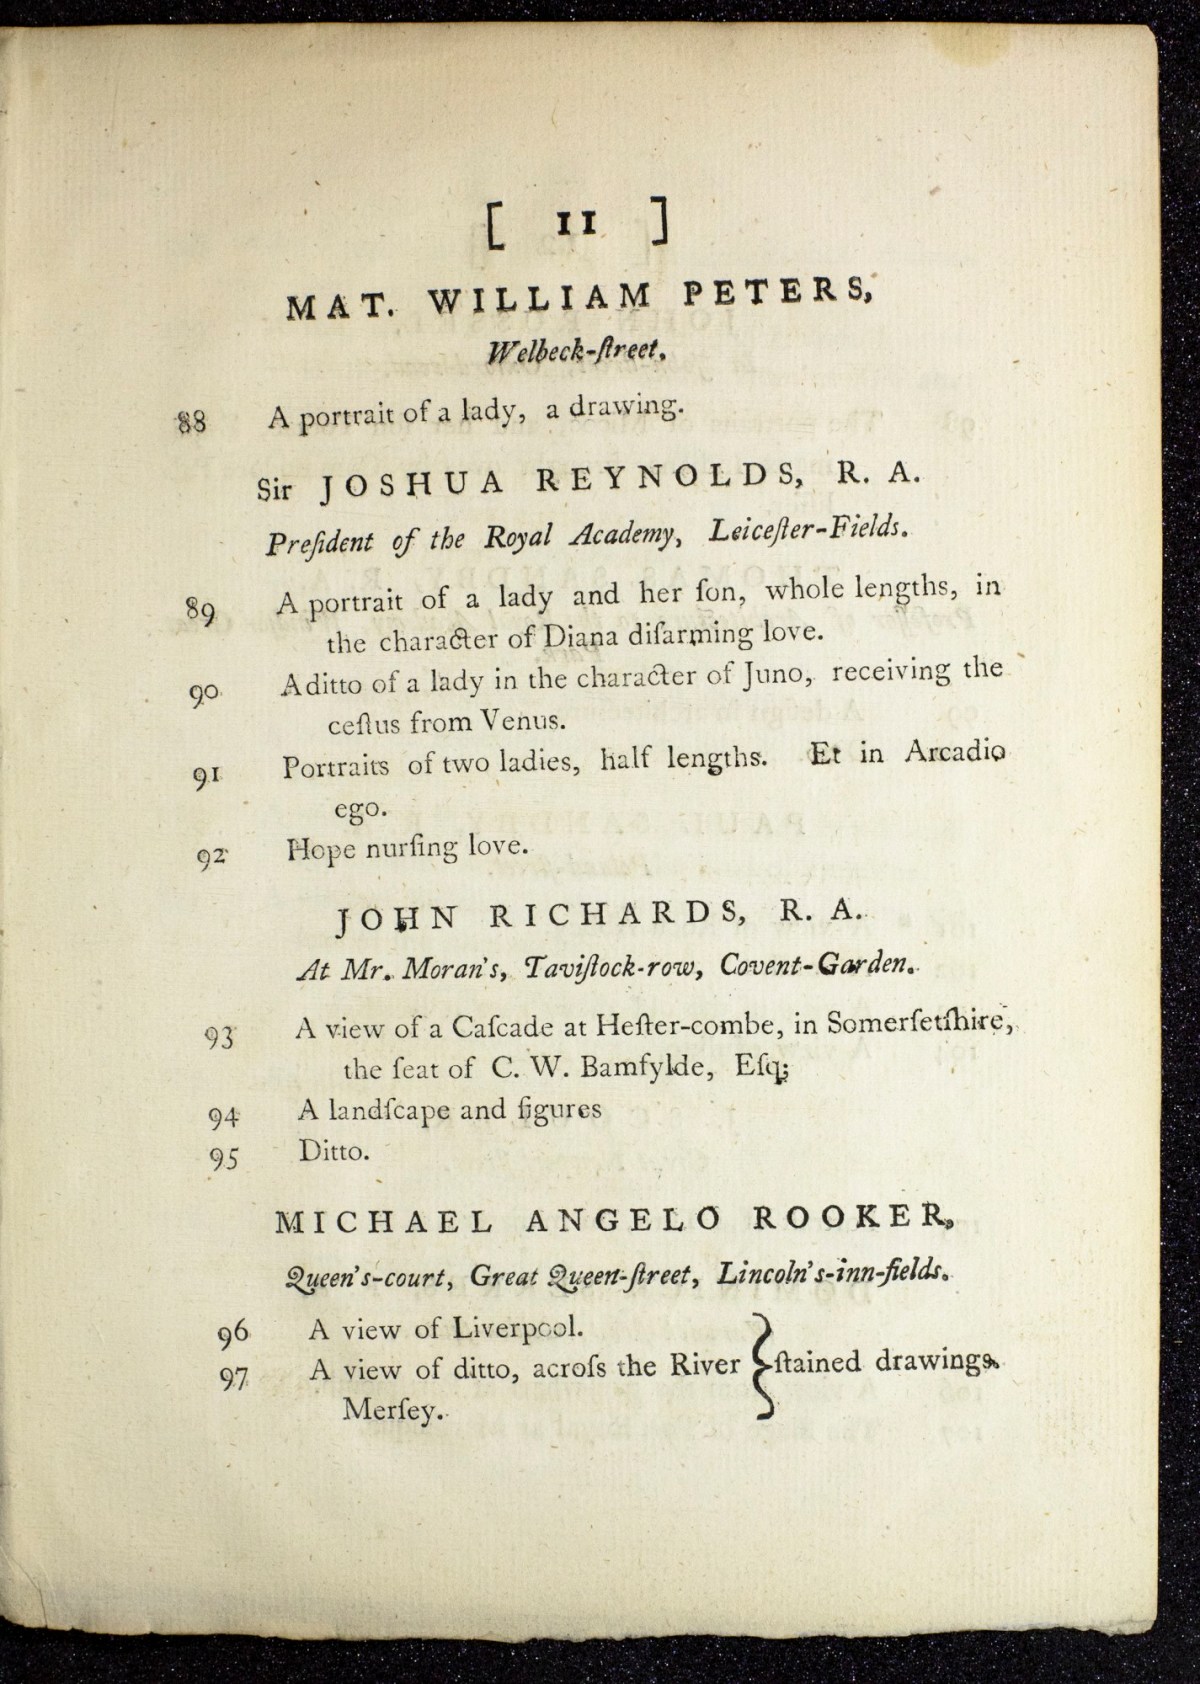 [ 11 ]
MAT. WILLIAM PETERS,
Welbeck-ſtreet.
88 A portrait of a lady, a drawing.
Sir JOSHUA REYNOLDS, R. A.
Preſident of the Royal Academy, Leiceſter-Fields.
89 A portrait of a lady and her ſon, whole lengths, in
the character of Diana diſarming love.
90 A ditto of a lady in the character of Juno, receiving the
ceſtus from Venus.
91 Portraits of two ladies, half lengths. Et in Arcadio
ego.
92 Hope nurſing love.
JOHN RICHARDS, R. A.
At Mr. Moran's, Taviſtock-row, Covent-Garden.
93 A view of a Caſcade at Heſter-combe, in Somerſetſhire,
the ſeat of C. W. Bamfylde, Eſq;
94 A landſcape and figures
95 Ditto.
MICHAEL ANGELO ROOKER,
Queen's-court, Great Queen-ſtreet, Lincoln's-inn-fields.
96 A view of Liverpool.
97 A view of ditto, acroſs the River } ſtained drawings.
Merſey.